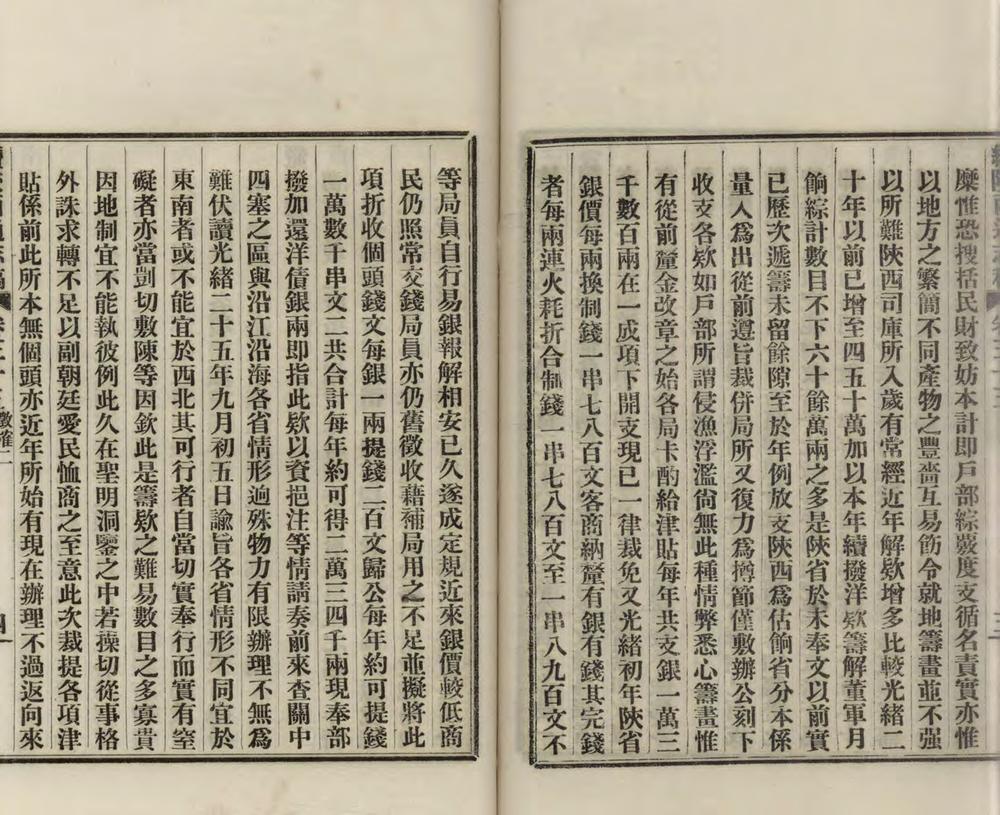 糜惟恐搜括民財致妨本計即戶部綜覈度支循名責實亦惟
以地方之繁簡不同產物之豐嗇互易飭令就地籌畫並不强
以所難陝西司庫所入歲有常經近年解欵增多比較光緒二
十年以前已增至四五十萬加以本年續撥洋欵籌解董軍月
餉綜計數目不下六十餘萬兩之多是陝省於未奉文以前實
已歷次遞籌未留餘隙至於年例放支陝西爲估餉省分本係
量人爲出從前遵旨裁併局所又復力爲撙節僅敷辦公刻下
收支各欵如戶部所謂侵漁浮濫尙無此種情弊悉心籌畫惟
有從前釐金改章之始各局卡酌給津貼每年共支銀一萬三
千數百兩在一成項下開支現已一律裁免又光緒初年陝省
銀價每兩換制錢一串七八百文客商納釐有銀有錢其完錢
者每兩連火耗折合制錢一串七八百文至一串八九百文不
等局員自行易銀報解相安已久遂成定規近來銀價較低商
民仍照常交錢局員亦仍舊徵收藉補局用之不足並擬將此
項折收個頭錢文每銀一兩提錢二百文歸公每年約可提錢
一萬數千串文二共合計每年約可得二萬三四千兩現奉部
撥加還洋債銀兩即指此欵以資挹注等情請奏前來查關中
四塞之區與沿江沿海各省情形逈殊物力有限辦理不無爲
難伏讀光緒二十五年九月初五日諭旨各省情形不同宜於
東南者或不能宜於西北其可行者自當切實奉行而實有窒
礙者亦當剴切敷陳等因欽此是籌欵之難易數目之多寡貴
因地制宜不能執彼例此久在聖明洞鑒之中若操切從事格
外誅求轉不足以副朝廷愛民恤商之至意此次裁提各項津
貼係前此所本無個頭亦近年所始有現在辦理不過返向來